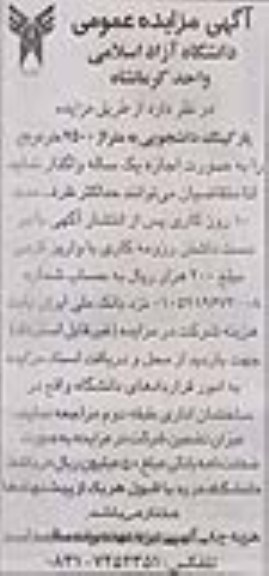 آگهی مزایده عمومی
دانشگاه آزاد اسلامی
واحد کرمانشاه
در نظر دارد از طریق مزایده
پارکینگ دانشجویی به متراژ ۲۵۰۰ متر مربع
را به صورت اجاره یک ساله واگذار نماید
لذا متقاضیان می‌توانند حداکثر ظرف مدت
۱۰ روز کاری پس از انتشار آگهی با در
دست داشتن رزومه کاری با واریز فیش
مبلغ ۲۰۰ هزار ریال به حساب شماره
نزد بانک ملی ایران بابت
هزینه شرکت در مزایده (غیرقابل استرداد)
جهت بازدید از محل و دریافت اسناد مزایده
به امور قراردادهای دانشگاه واقع در
ساختمان اداری طبقه دوم مراجعه نمایند
میزان تضمین شرکت در مزایده به صورت
ضمانت نامه بانکی مبلغ ۵۰ میلیون ریال می‌باشد
دانشگاه در رد یا قبول هر یک از پیشنهادها
مختار می‌باشد
هزینه چاپ آگهی به عهده برنده مزایده است
تلفکس: ۷۲۵۲۳۵۱-۰۸۳۱